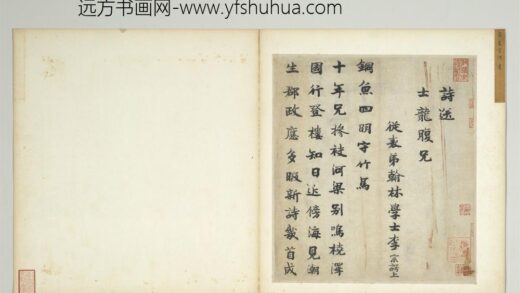 远方书画网-www.yfshuhua.com
詩送
士龍腹兄
從表弟翰林學士李宗諤上
銅魚四明守竹馬
十年兄捴被河梁別鳴橈澤
國行登樓知日近傍海見潮
生郡政應多暇新詩幾首成